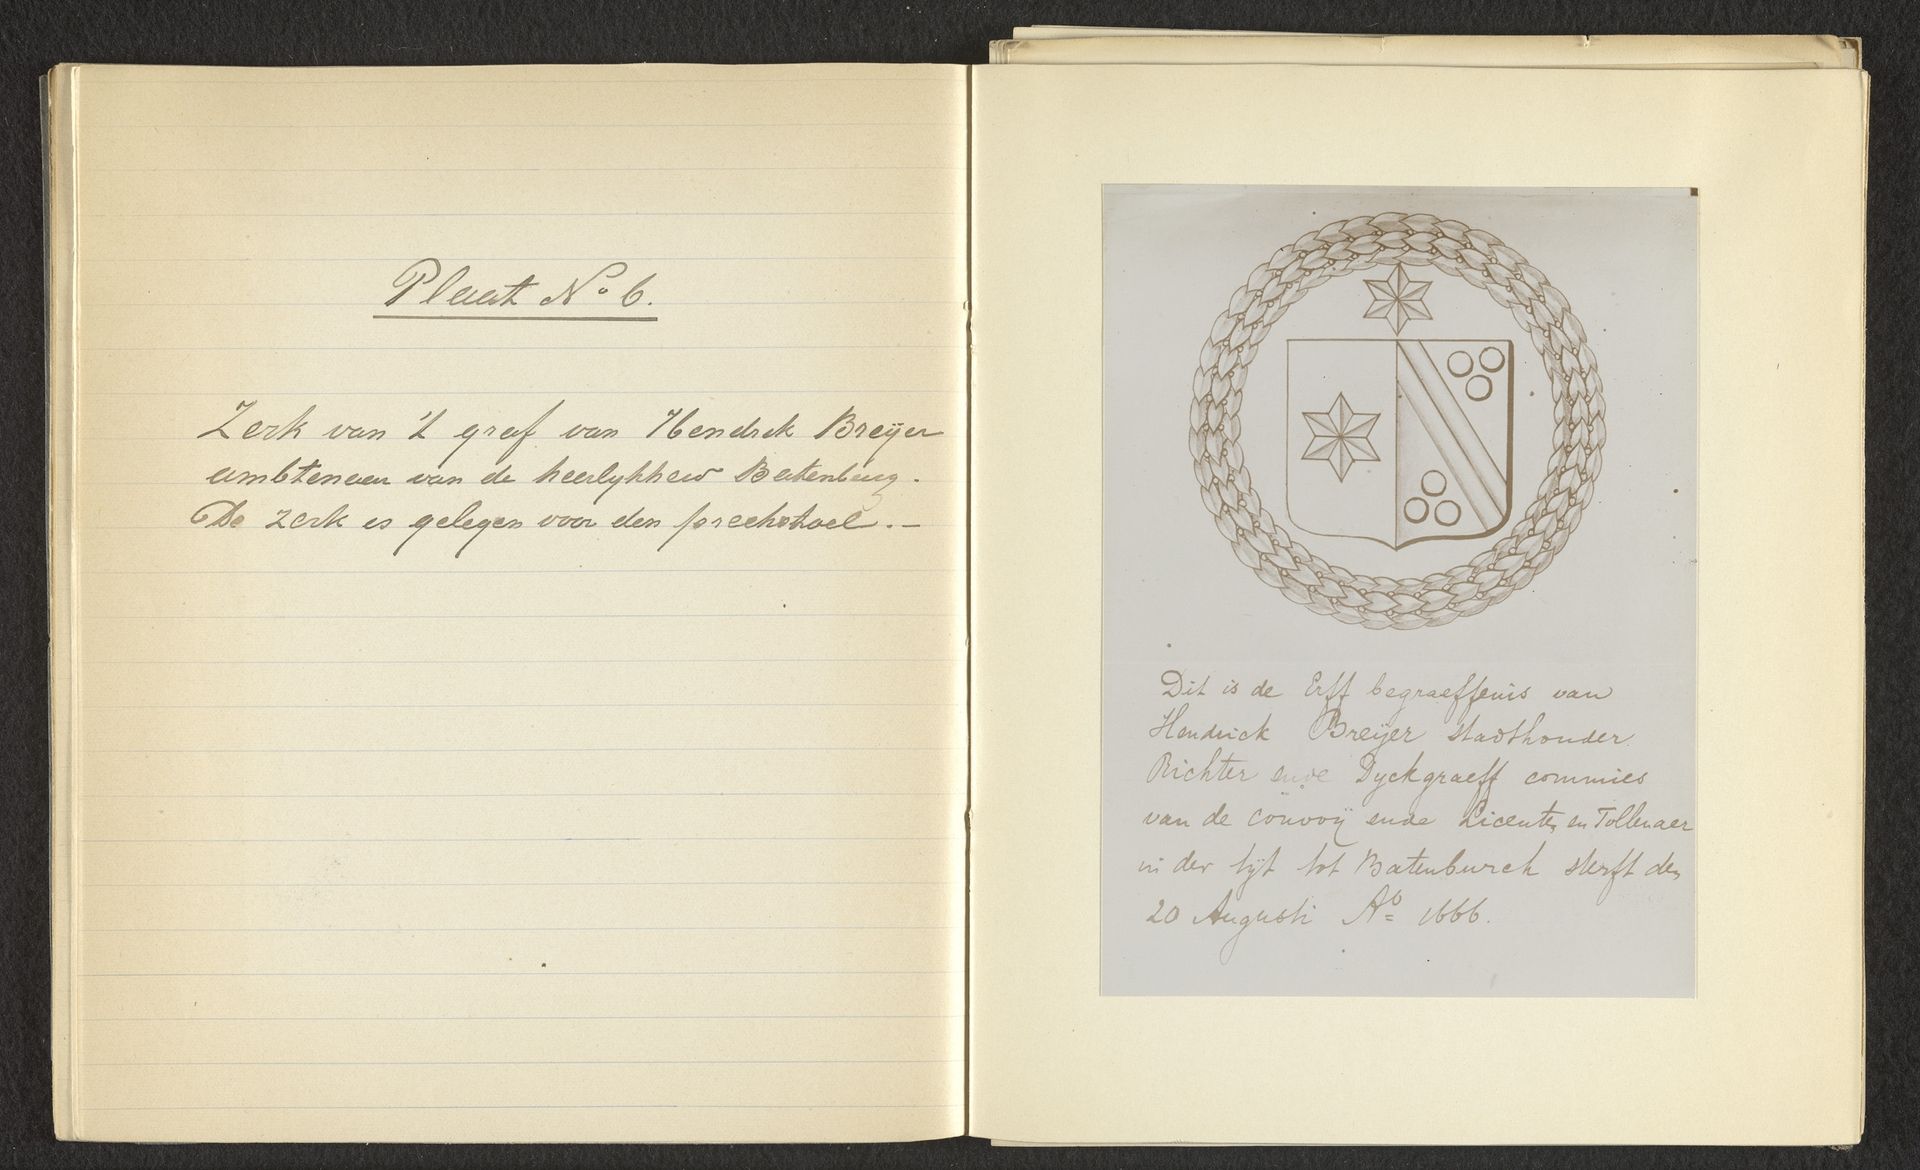 Plaat No 6.
Zerk van 't graf van Hendrik Breÿer
ambtenaar van de heerlykheid Batenburg.
De zerk is gelegen voor den preekstoel. –
Dit is de Erff begraeffenis van
Hendrick Breÿer stadthouder
Richter ende Dyckgraeff commies
van de convoÿ ende Licenten en Tollenaer
in der tÿt tot Batenburch sterft den
20 Augusti Ao 1666.